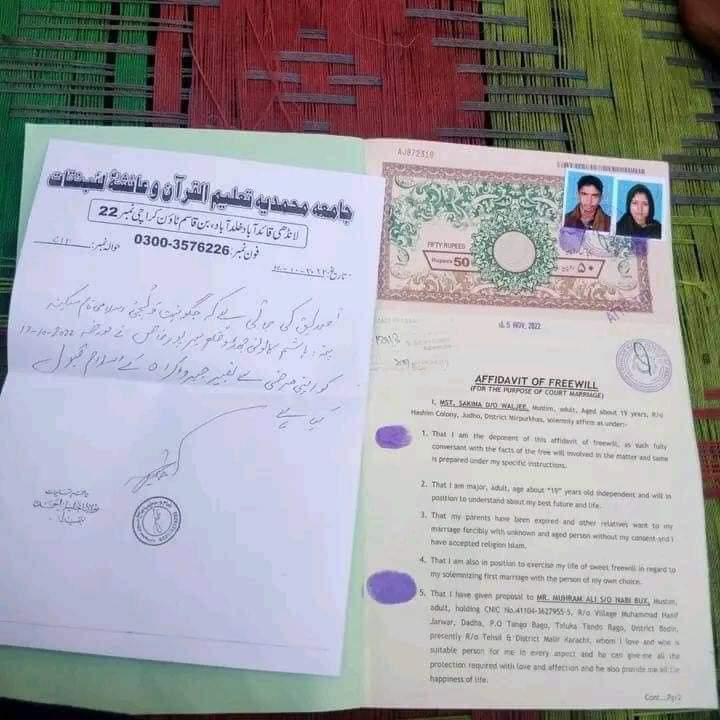 جامعہ محمدیہ تعلیم القرآن و عائشہؓ للبنات
لانڈھی قائد آباد خلد آباد، بن قاسم ٹاؤن کراچی نمبر 22
فون نمبر: 0300-3576226 حوالہ نمبر:
تاریخ:
17-10-2022
کو اپنی مرضی سے بغیر جبر و اکراہ کے اسلام قبول
کیا ہے
AJ872319
FIFTY RUPEES
Rupees 50
۵۰
15 NOV. 2022
AFFIDAVIT OF FREEWILL
(FOR THE PURPOSE OF COURT MARRIAGE)
I, MST. SAKINA D/O WALJEE, Muslim, adult, Aged about 19 years, R/o
Hashim Colony, Judho, District Mirpurkhas, solemnly affirm as under:-
1. That I am the deponent of this affidavit of freewill, as such fully
conversant with the facts of the free will involved in the matter and same
is prepared under my specific instructions.
2. That I am major, adult, age about "19" years old independent and will in
position to understand about my best future and life.
3. That my parents have been expired and other relatives want to my
marriage forcibly with unknown and aged person without my consent and I
have accepted religion Islam.
4. That I am also in position to exercise my life of sweet freewill in regard to
my solemnizing first marriage with the person of my own choice.
5. That I have given proposal to MR. MUHRAM ALI S/O NABI BUX, Muslim,
adult, holding CNIC No.41104-3627955-5, R/o Village Muhammad Hanif
Jarwar, Dadha, P.O Tango Bago, Teluka Tando Bago, District Badin,
presently R/o Tehsil & District Malir Karachi, whom I love and who is
suitable person for me in every aspect and he can give me all the
protection required with love and affection and he also provide me all the
happiness of life.
Cont...Pg/2